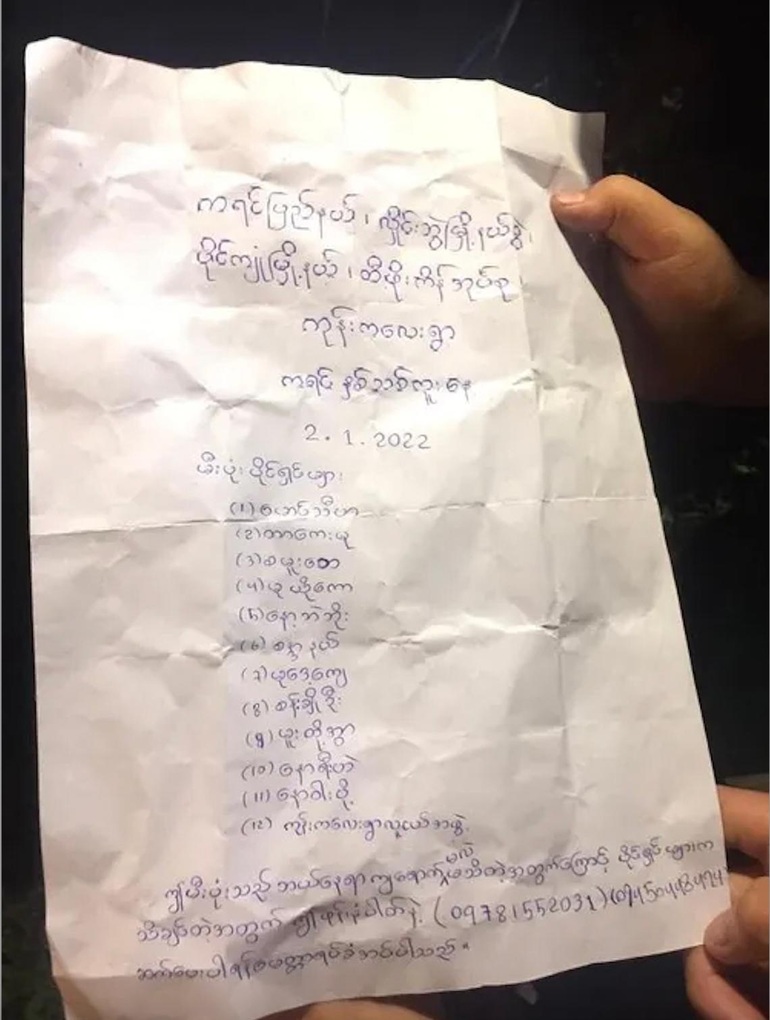 ကရင်ပြည်နယ်၊ လှိုင်းဘွဲ့မြို့နယ်ခွဲ၊
ပိုင်ကျုံမြို့နယ်၊ တီဖိုးကိန်အုပ်စု
ကုန်းကလေးရွာ
ကရင်နှစ်သစ်ကူးနေ့
2.1.2022
မီးပုံးပိုင်ရှင်များ
(၁)
(၂) တာကေးယု
(၃)
(၄)
(၅) နော့ဘဲဘိုး
(၆) စန္ဒာနယ်
(၇)
(၈) စန်းချိုဦး
(၉)
(၁၀) နော်ရီးဟဲ
(၁၁) နော်ဝါးပို့
(၁၂) ကုန်းကလေးရွာလူငယ်အဖွဲ့
ဤမီးပုံးသည် ဘယ်နေရာကျရောက်မှန်းမသိတဲ့အတွက်ကြောင့် ပိုင်ရှင်များက
သိချင်တဲ့အတွက် ဤဖုန်းနံပါတ်နဲ့ (09781552031)
ဆက်ပေးပါရန်မေတ္တာရပ်ခံအပ်ပါသည်။